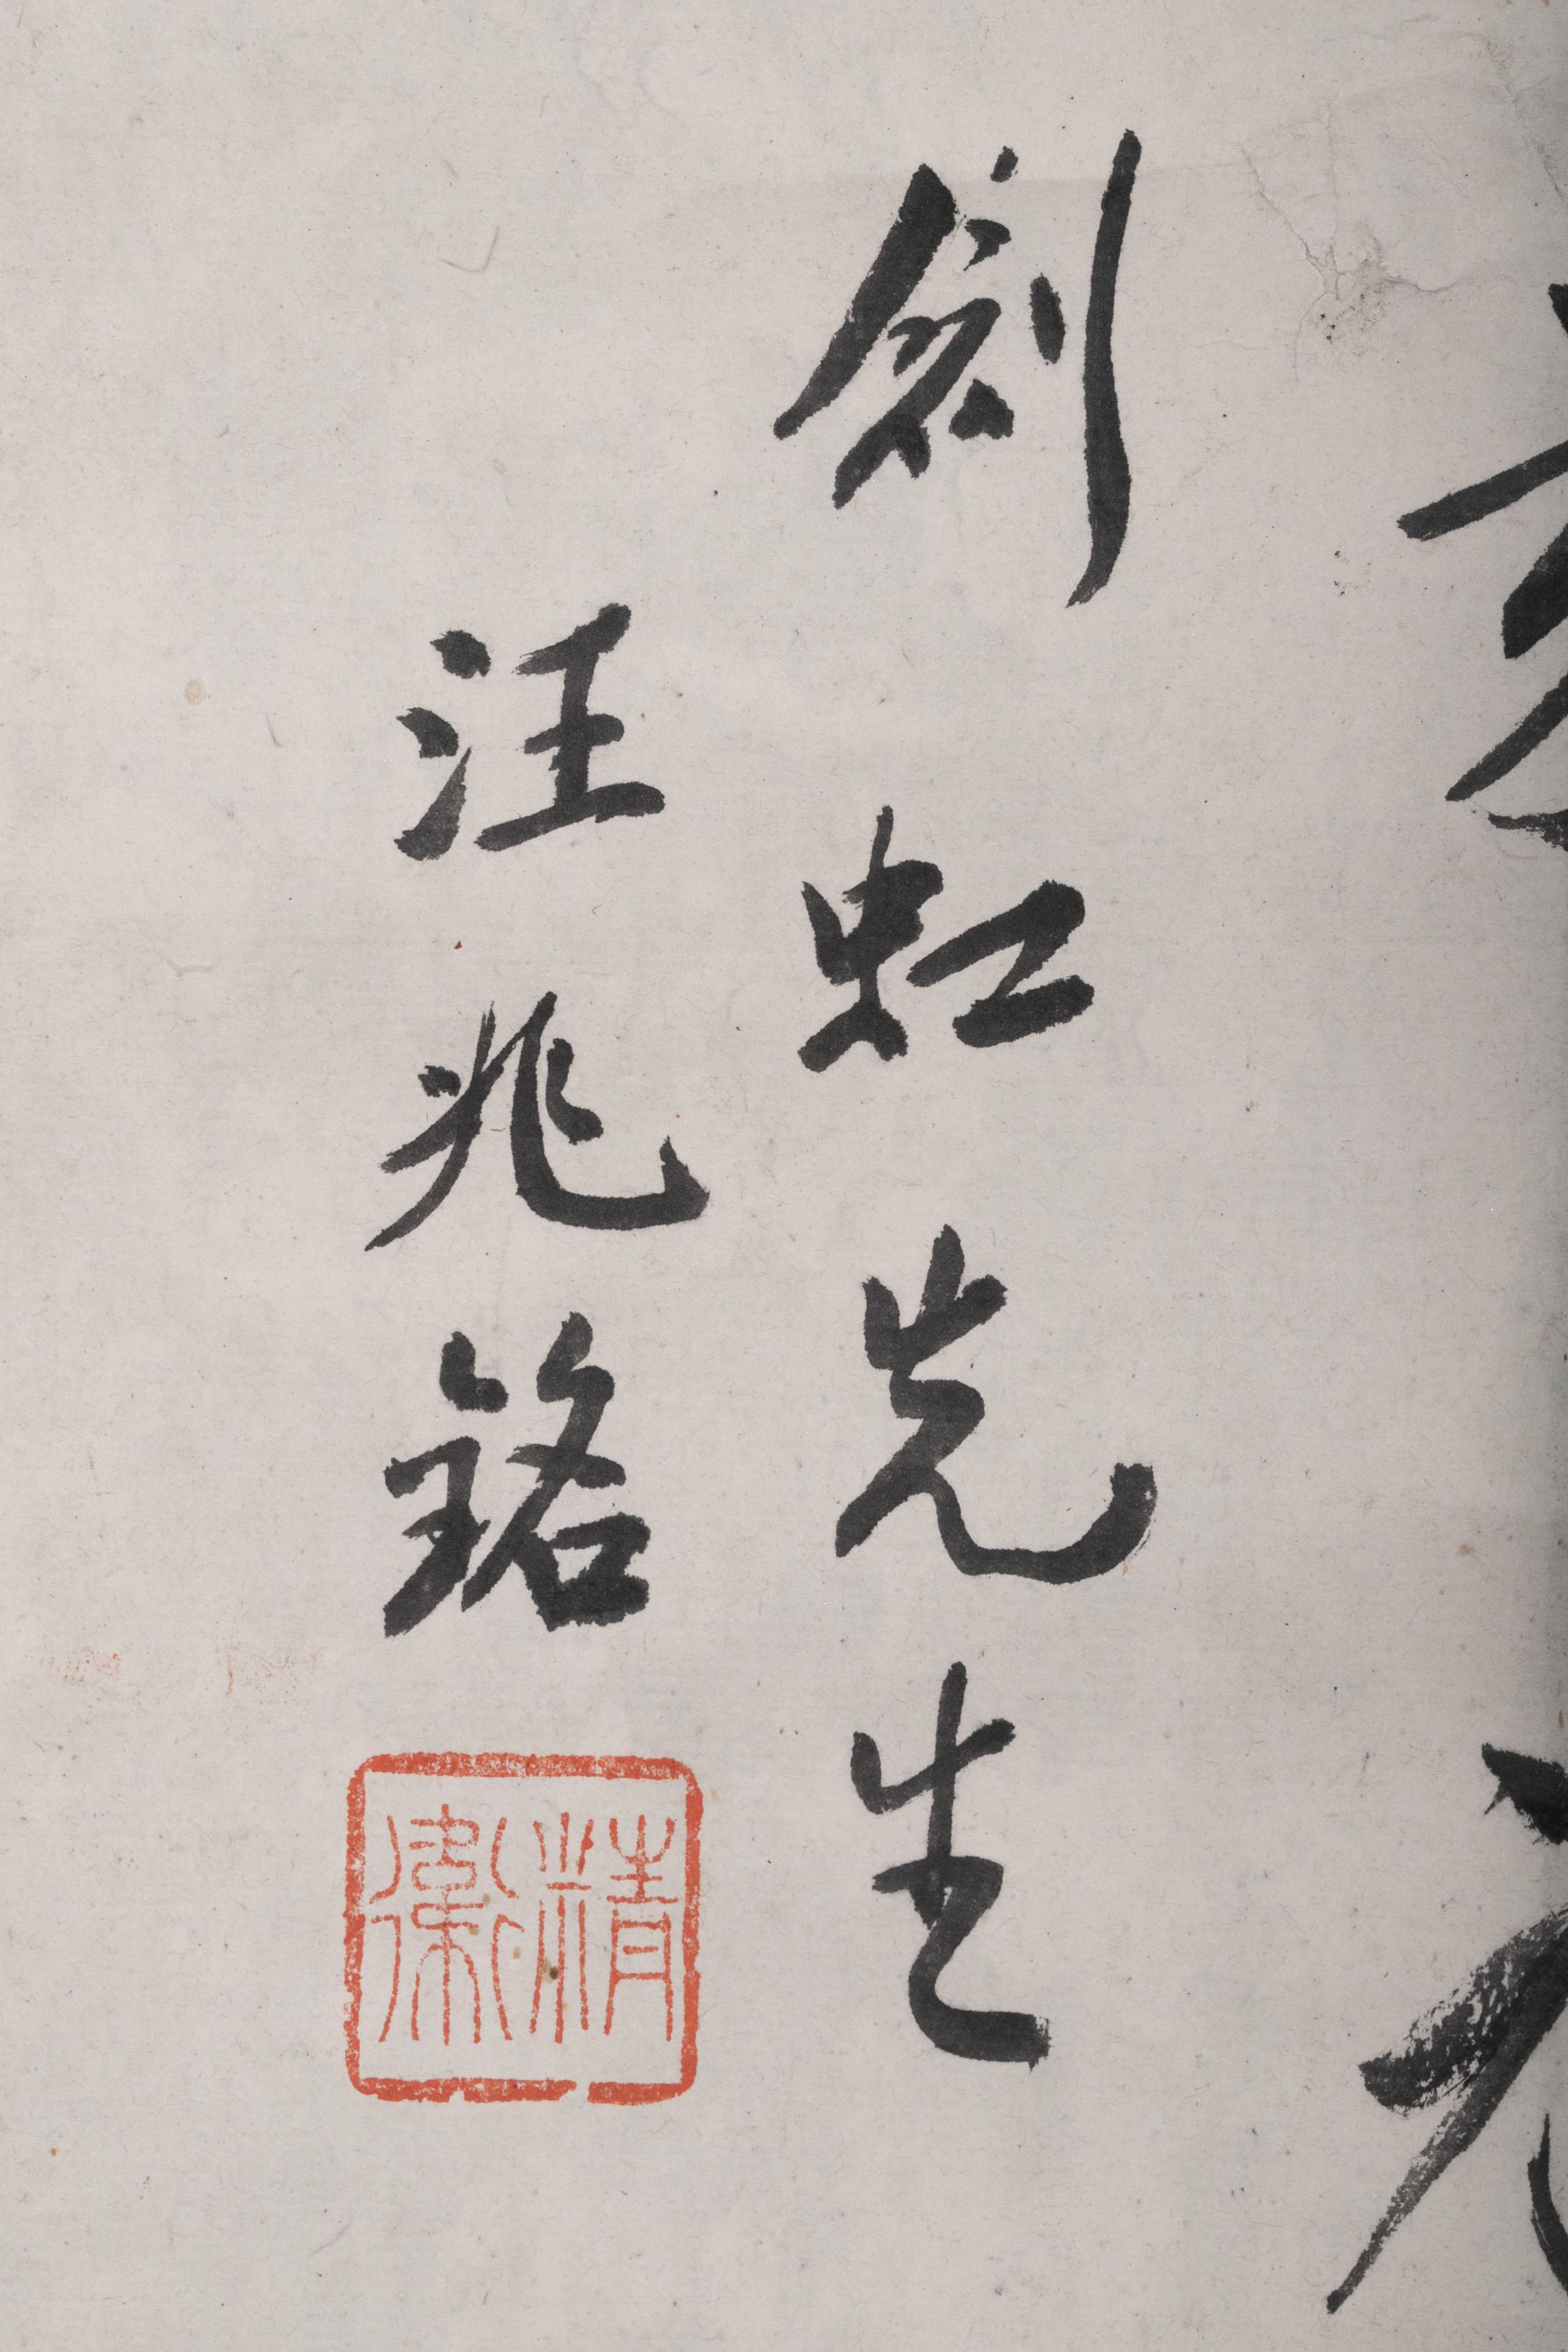 劍虹先生
汪兆銘
精衛